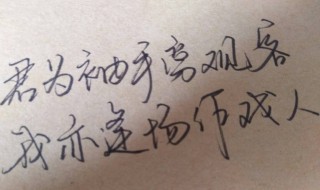 君为袖手高观客
我亦逢场作戏人